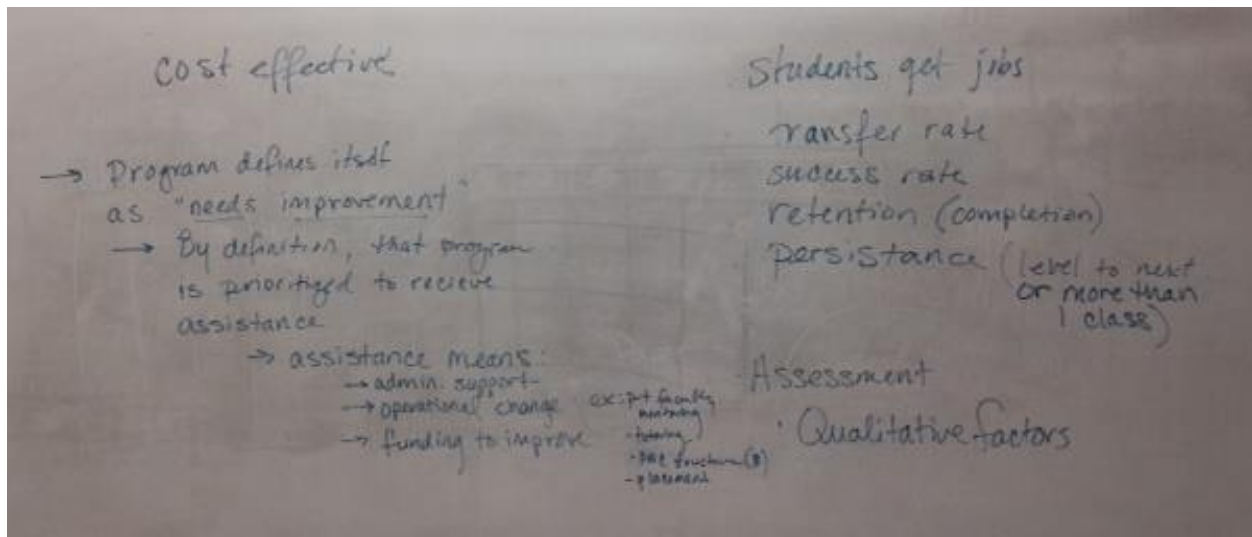 cost effective
→ Program defines itself
as "needs improvement"
→ By definition, that program
is prioritized to recieve
assistance
→ assistance means:
→ admin. support
→ operational change
→ funding to improve
ex: p-t faculty
mentoring
- tutoring
- structure (B)
- placement
Students get jobs
transfer rate
success rate
retention (completion)
persistance (level to next
or more than
1 class)
Assessment
· Qualitative factors